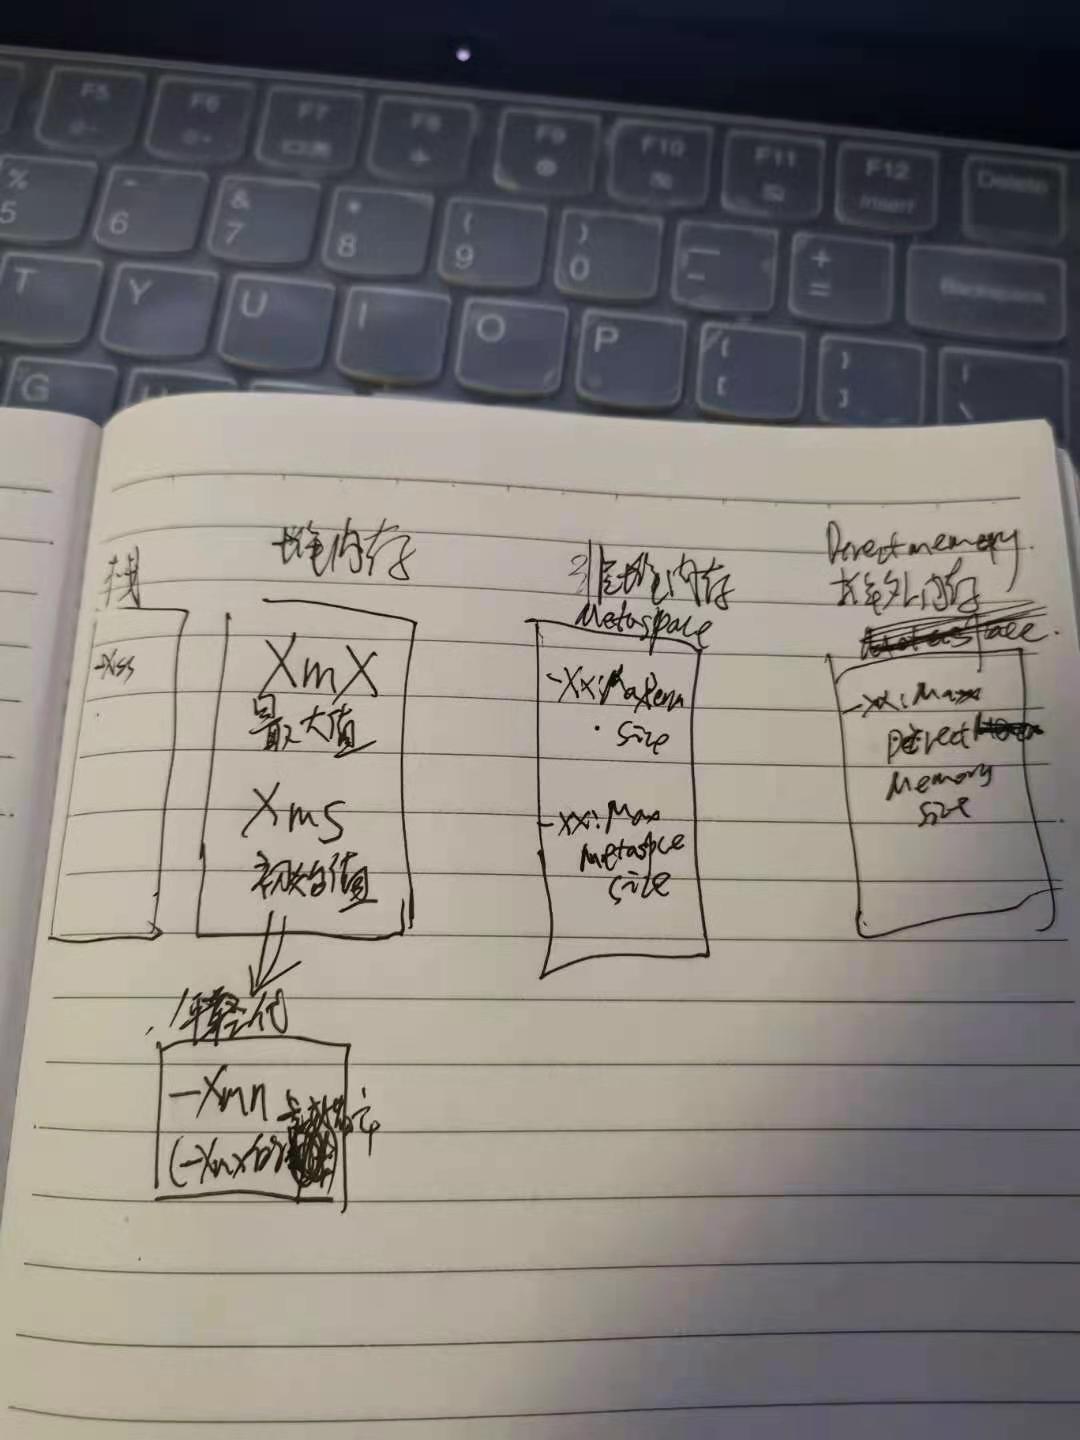 F5
F6
F7
F8
F9
F10
F11
F12
Insert
Delete
%
5
6
&
7
*
8
(
9
)
0
—
-
+
=
Backspace
T
Y
U
I
O
P
{
[
}
]
|
\
G
H
栈
-Xss
堆内存
XmX
最大值
Xms
初始值
年轻代
-Xmn
(-Xmx的
非堆内存
Metaspace
-XX:MaxPerm
size
-XX:Max
Metaspce
size
Directmemory
堆外内存
-XX:Max
Direct
Memory
size